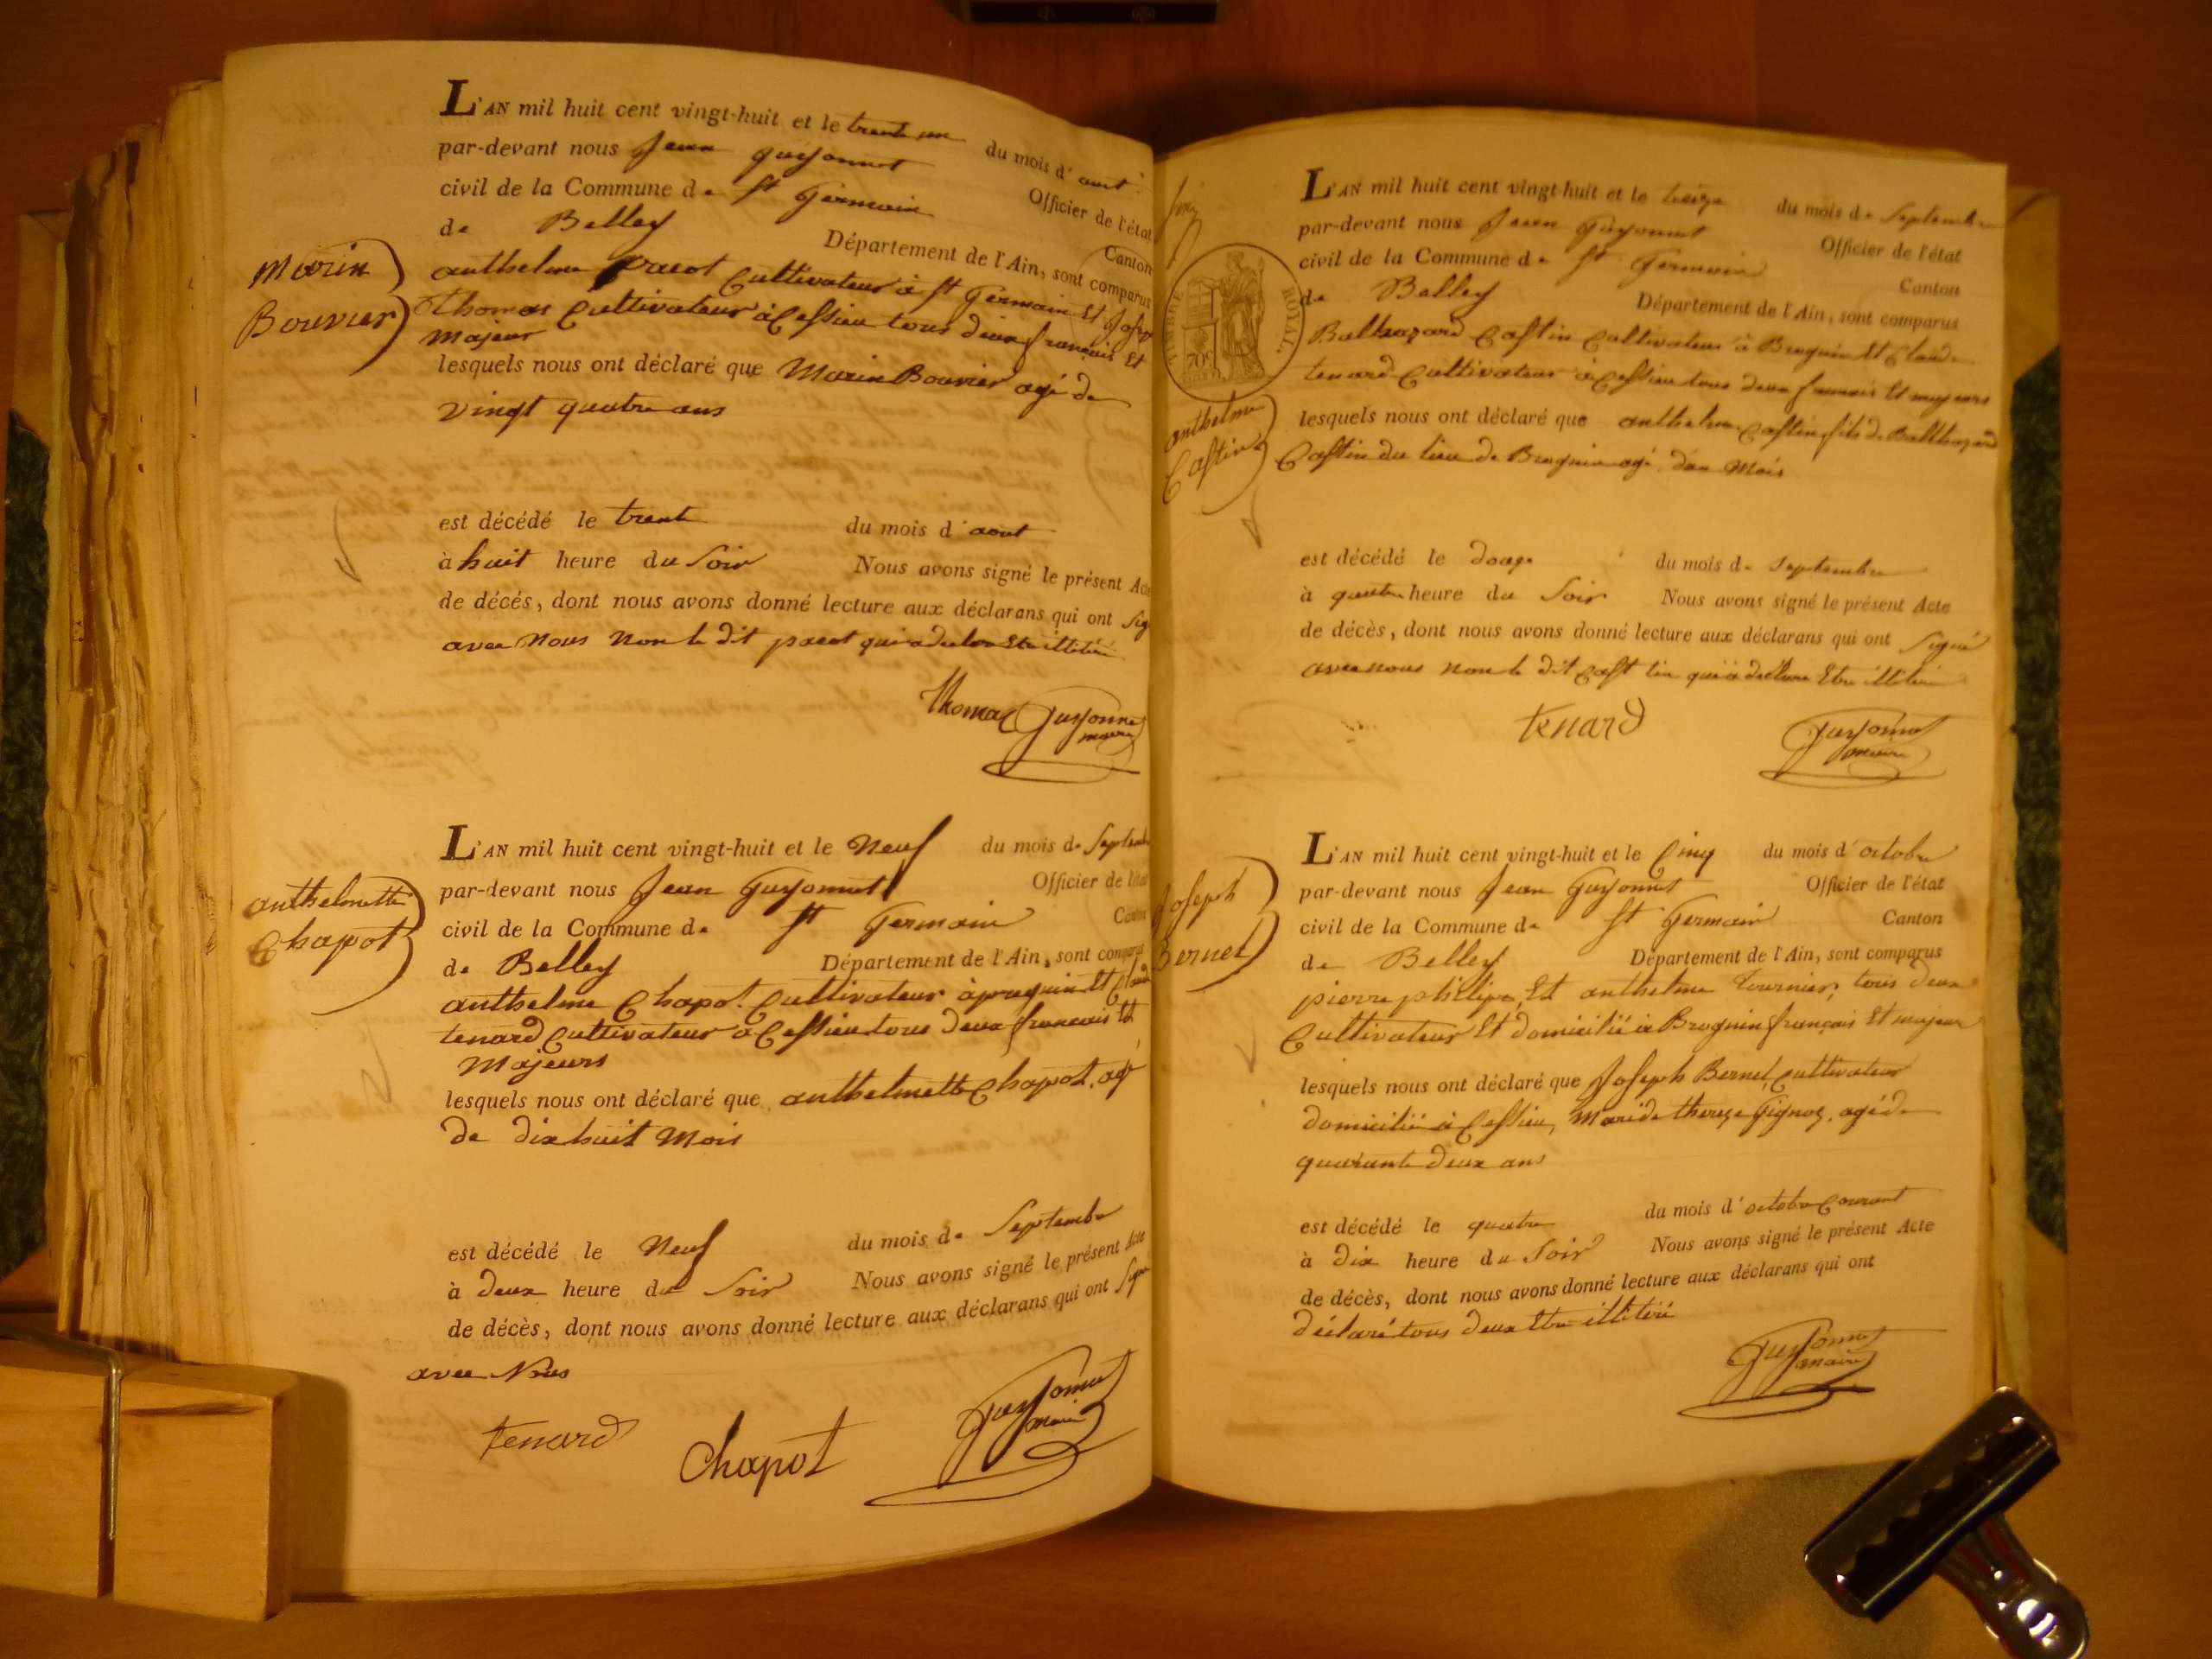 L'AN mil huit cent vingt-huit et le trente un du mois d'aout
par-devant nous Jean guyonnet Officier de l'état
civil de la Commune de St Germain Canton
de Belley Département de l'Ain, sont comparus
Marin
Bouvier
anthelme pacot Cultivateur à St Germain Et
Thomas Cultivateur à Cessieu tous deux français Et
Majeur
lesquels nous ont déclaré que Marin Bouvier agé de
vingt quatre ans
est décédé le trente du mois d'aout
à huit heure du Soir Nous avons signé le présent Acte
de décés, dont nous avons donné lecture aux déclarans qui ont Sig
avec Nous Non le dit pacot qui a declare Etre illitéré
Thomas Guyonnet
maire
L'AN mil huit cent vingt-huit et le Neuf du mois de Septembre
par-devant nous Jean Guyonnet Officier de l'état
civil de la Commune de St Germain Canton
de Belley Département de l'Ain, sont comparus
anthelmette
Chapot
anthelme Chapot Cultivateur à pregnin Et Claude
tenard Cultivateur à Cessieu tous deux français Et
Majeurs
lesquels nous ont déclaré que anthelmette Chapot agé
de dix huit Mois
est décédé le Neuf du mois de Septembre
à deux heure du Soir Nous avons signé le présent Acte
de décès, dont nous avons donné lecture aux déclarans qui ont Signé
avec Nous
tenard Chapot Guyonnet
maire
L'AN mil huit cent vingt-huit et le treize du mois de Septembre
par-devant nous Jean Guyonnet Officier de l'état
civil de la Commune de St Germain Canton
de Belley Département de l'Ain, sont comparus
TIMBRE ROYAL
70c
anthelme
Castin
Balthazard Castin Cultivateur à Brognin Et Claude
tenard Cultivateur à Cessieu tous deux français Et majeurs
lesquels nous ont déclaré que anthelme Castin fils de Balthazard
Castin du lieu de Brognin agé d'un Mois
est décédé le douze du mois de Septembre
à quatre heure du Soir Nous avons signé le présent Acte
de décès, dont nous avons donné lecture aux déclarans qui ont Signé
avec nous non le dit Castin qui a déclaré Etre illitéré
tenard Guyonnet
maire
L'AN mil huit cent vingt-huit et le Cinq du mois d'octobre
par-devant nous Jean Guyonnet Officier de l'état
civil de la Commune de St Germain Canton
de Belley Département de l'Ain, sont comparus
Joseph
Bernet
pierre philipe Et anthelme Tournier, tous deux
Cultivateur Et domicilié à Brognin français Et majeur
lesquels nous ont déclaré que Joseph Bernet Cultivateur
domicilié à Cessieu, Mari de thereze Gignoz agé de
quarante deux ans
est décédé le quatre du mois d'octobre Courant
à dix heure du Soir Nous avons signé le présent Acte
de décès, dont nous avons donné lecture aux déclarans qui ont
déclaré tous deux Etre illitéré
Guyonnet
maire